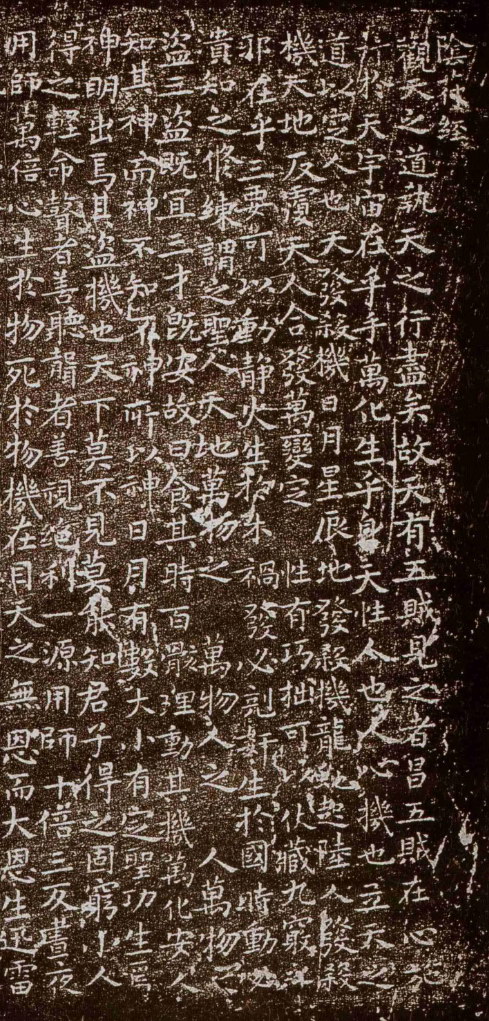 陰符經
觀天之道執天之行盡矣故天有五賊見之者昌五賊在心施
行於天宇宙在乎手萬化生乎身天性人也人心機也立天之
道以定人也天發殺機日月星辰地發殺機龍虵起陸人發殺
機天地反覆天人合發萬變定 性有巧拙可以伏藏九竅之
邪在乎三要可以動静火生於木禍發必剋奸生於國時動必
潰知之修練謂之聖人天地萬物之 萬物人之 人萬物之
盜三盜既宜三才既安故曰食其時百骸理動其機萬化安人
知其神而神不知不神所以神日月有數大小有定聖功生焉
神明出焉其盜機也天下莫不見莫能知君子得之固窮小人
得之輕命瞽者善聽聾者善視絶利一源用師十倍三反晝夜
用師萬倍心生於物死於物機在目天之無恩而大恩生迅雷